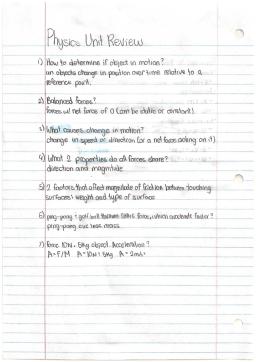 Physics Unit Review
1) How to determine if object in motion?
an objects change in position over time relative to a
reference point.
2) Balanced forces?
forces w/ net force of 0 (can be static or constant)
3) What causes change in motion?
change in speed or direction (or a net force acting on it)
4) What 2 properties do all forces share?
direction and magnitude
5) 2 factors that affect magnitude of friction between touching
surfaces: weight and type of surface
6) ping-pong + golf ball thrown same force, which accelerate faster?
ping-pong cuz less mass
7) force 10N, 5kg object. Acceleration?
A=F/M A=10N÷5kg A=2m/s²